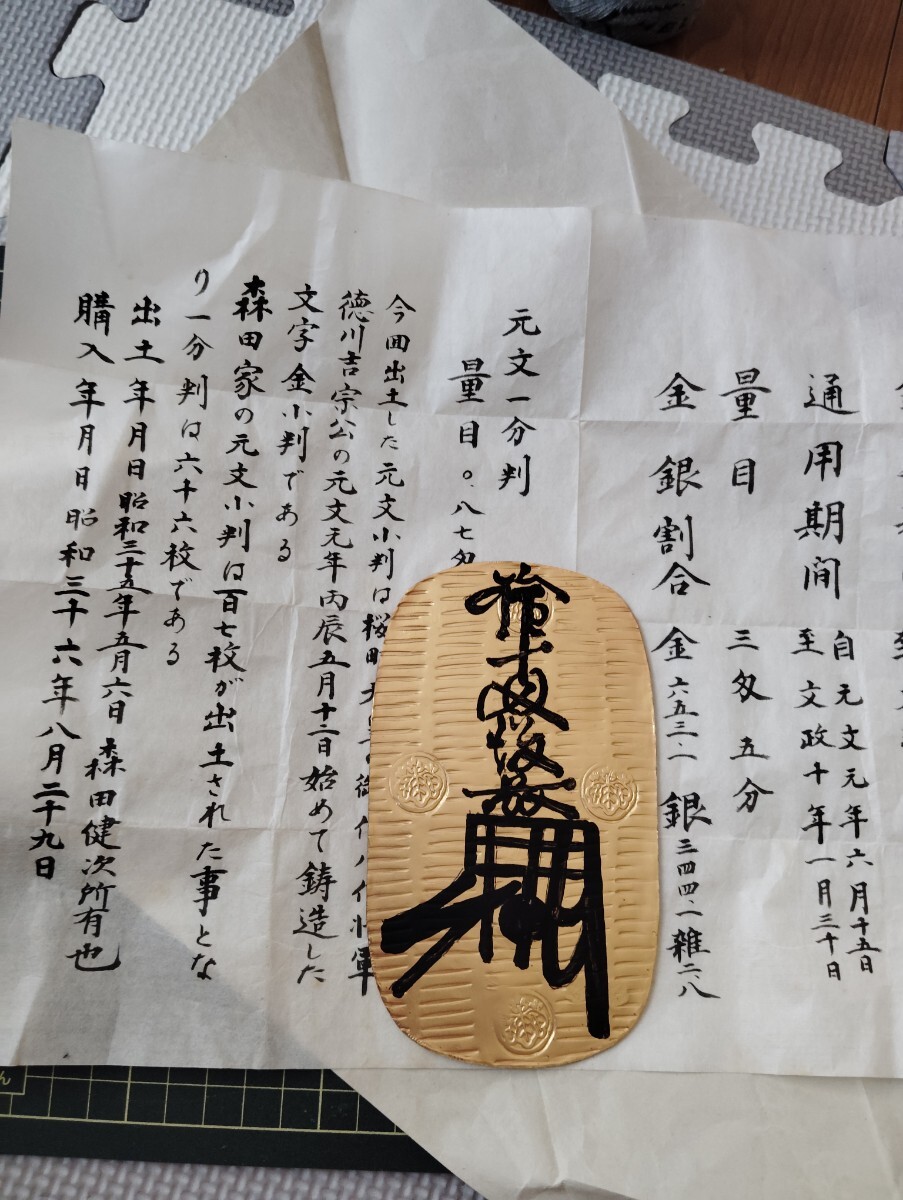 通用期間 自元文元年六月十五日
至文政十年一月三十日
量目 三匁五分
金銀割合 金六五三・一 銀三四四・一 雑二・八
元文一分判
量目〇・八七匁
今回出土した元文小判は桜町
代八代将軍
徳川吉宗公の元文元年丙辰五月十二日始めて鋳造した
文字金小判である
森田家の元文小判は百七枚が出土された事とな
り一分判は六十六枚である
出土年月日昭和三十五年五月六日 森田健次所有也
購入年月日昭和三十六年八月二十九日
拾